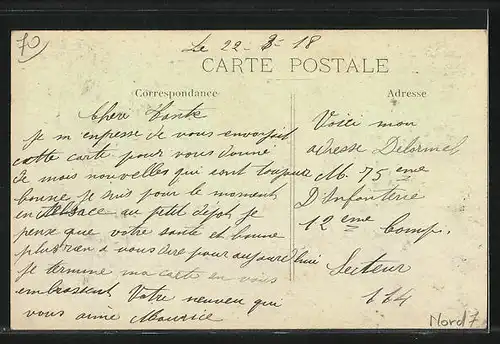 70
Le 22-3-18
CARTE POSTALE
Correspondance
Adresse
Chere Tante
Je m enpesse de vous envoyait
cette carte pour vous donné
de mais nouvelles qui sont toujours
bonne je suis pour le moment
en Alsace au petit dépot je
penx que votre santé et bonne
plus rien a vous dire pour aujourd'hui
je termine ma carte en vous
embrassent Votre neuveu qui
vous aime Maurice
Voici mon
adresse Delormel
M. 75 eme
D'Infanterie
12 eme Comp.
Secteur
114
Nord 7